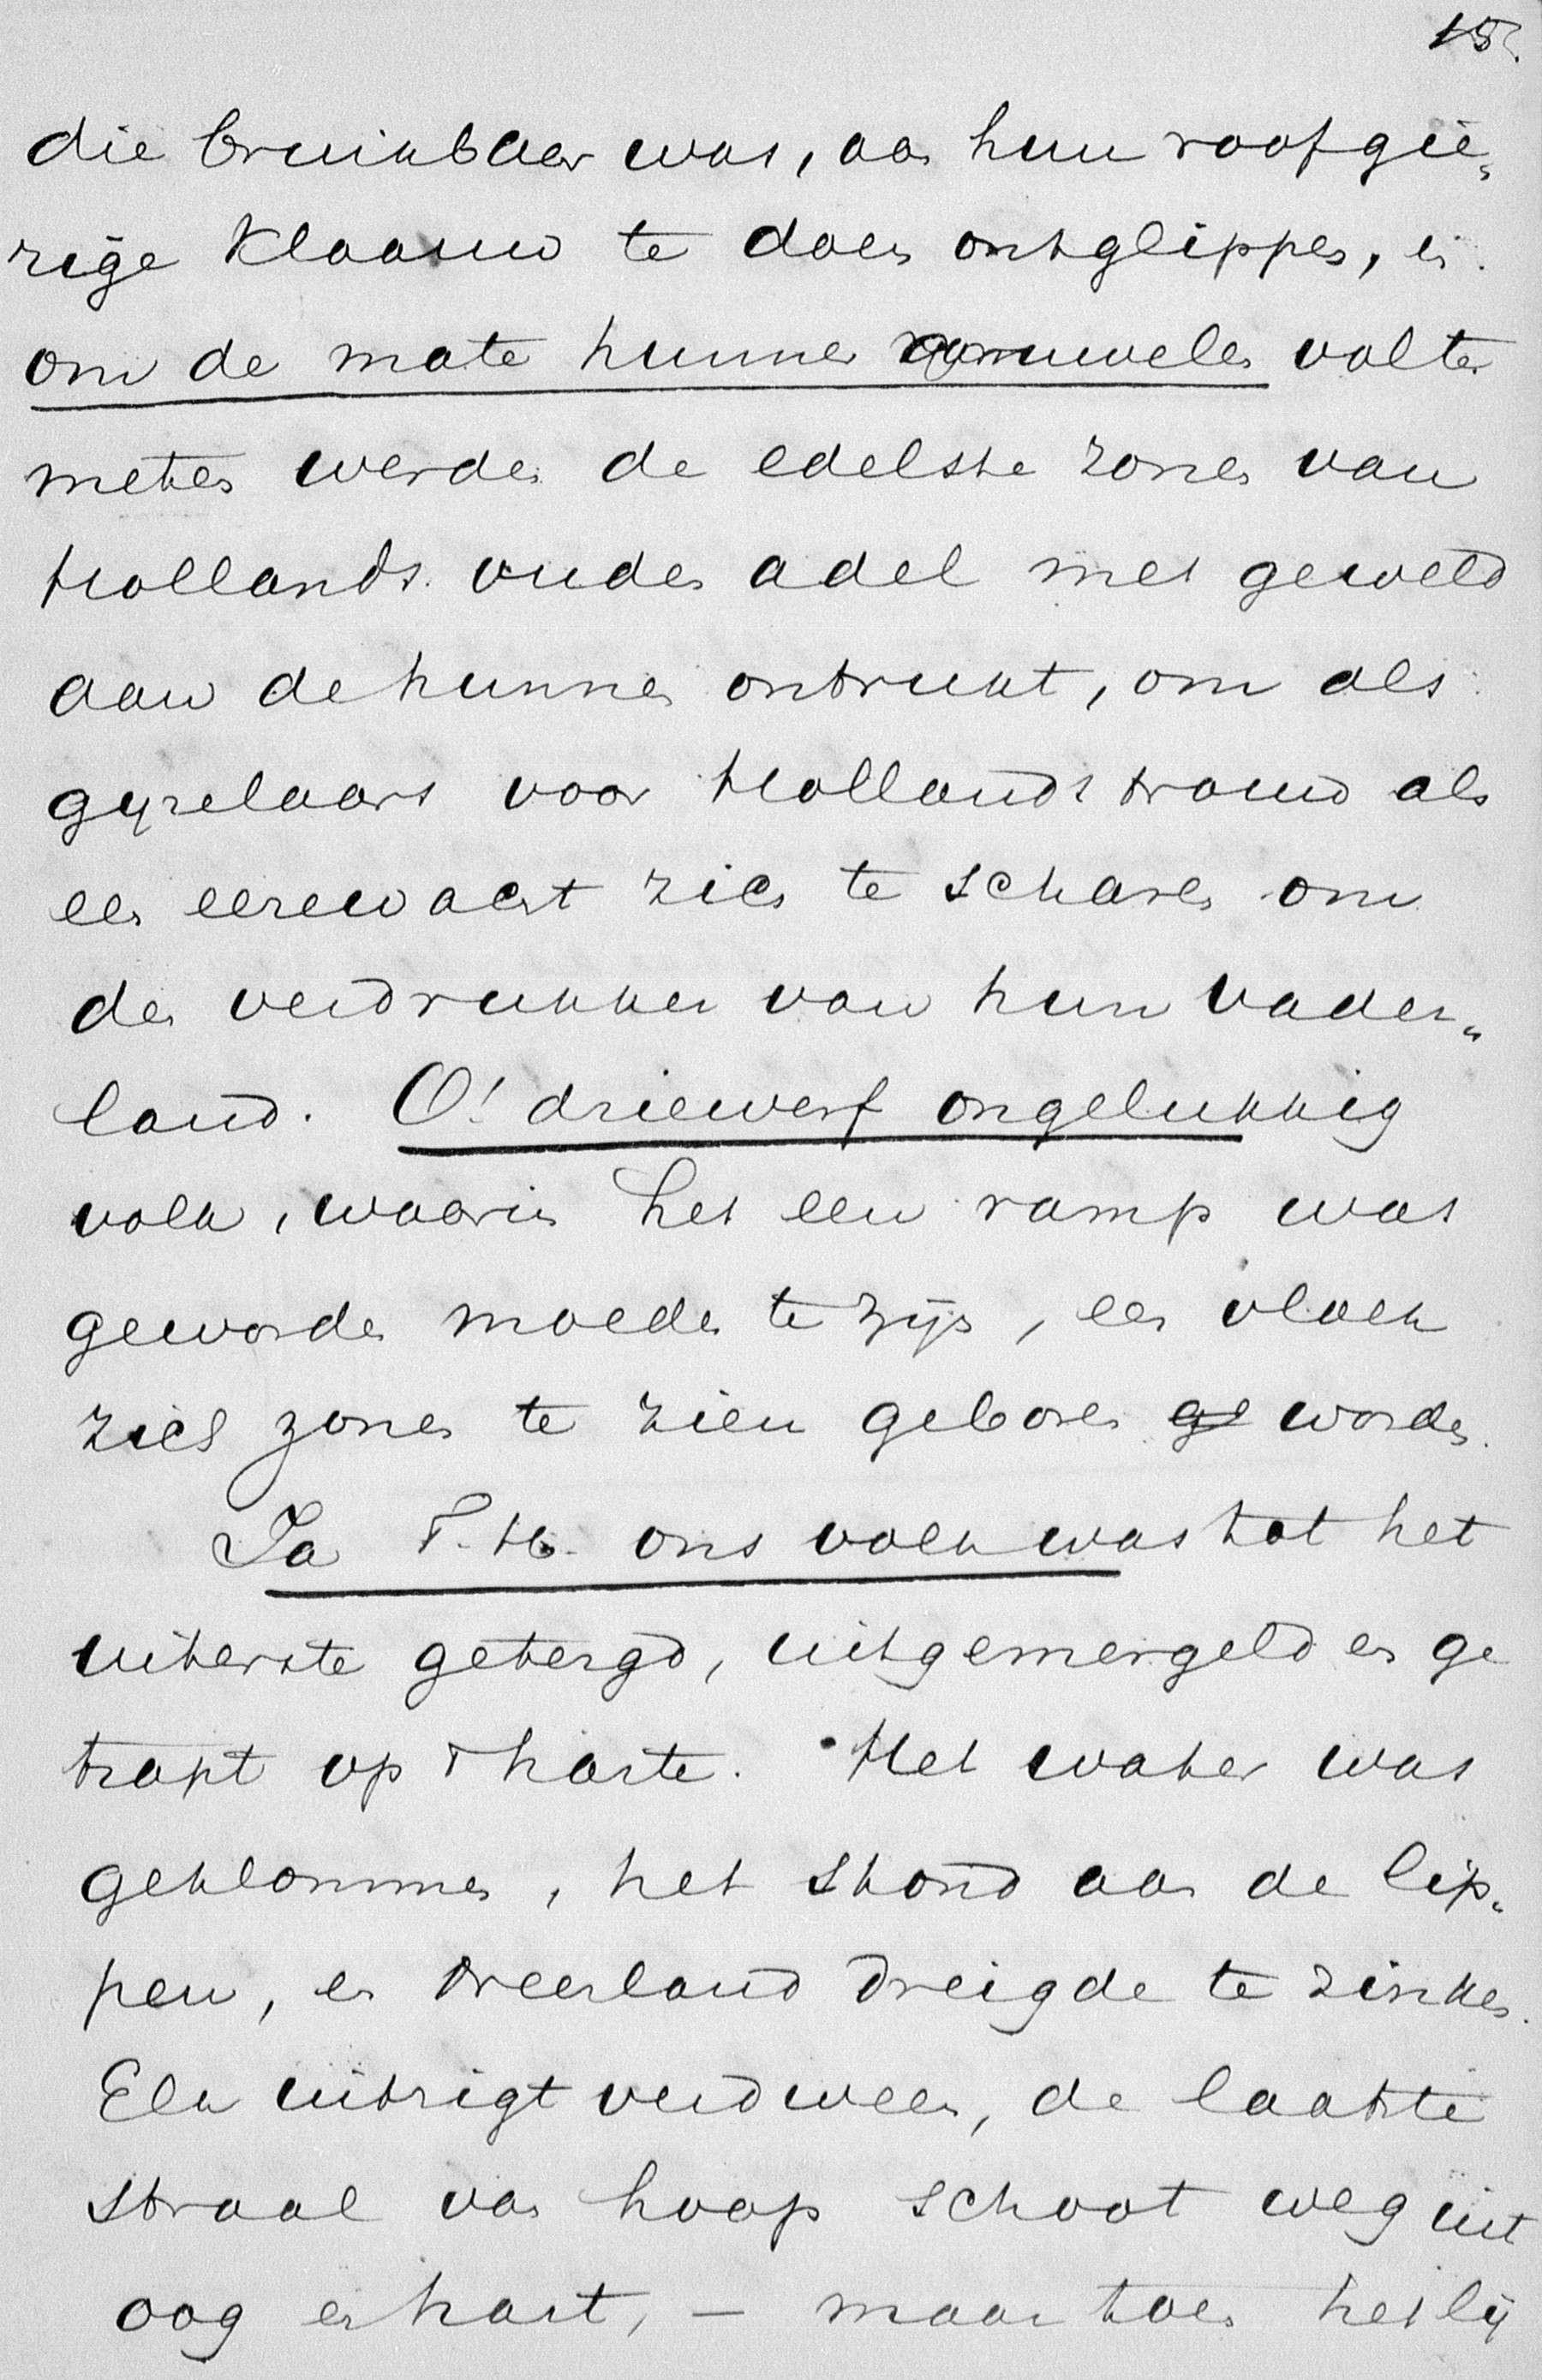 15.
die bruikbaar was, aan hun roofgie„
rige klaauw te doen ontglippen, en
om de mate hunner gruwelen vol te
meten werden de edelste zonen van
Hollands ouden adel met geweld
aan de hunnen ontrukt, om als
gyzelaars voor Hollands trouw als
een eerewacht zich te scharen om
den verdrukker van hun vader„
land. O! driewerf ongelukkig
volk, waarin het een ramp was
geworden moeder te zijn, een vloek
zich zonen te zien geboren ge worden.
Ja T. H. ons volk was tot het
uiterste getergd, uitgemergeld en ge
trapt op 't harte. Het water was
geklommen, het stond aan de lip„
pen, en Neerland dreigde te zinken.
Elk uitzigt verdween, de laatste
straal van hoop schoot weg uit
oog en hart, — maar toen het lij